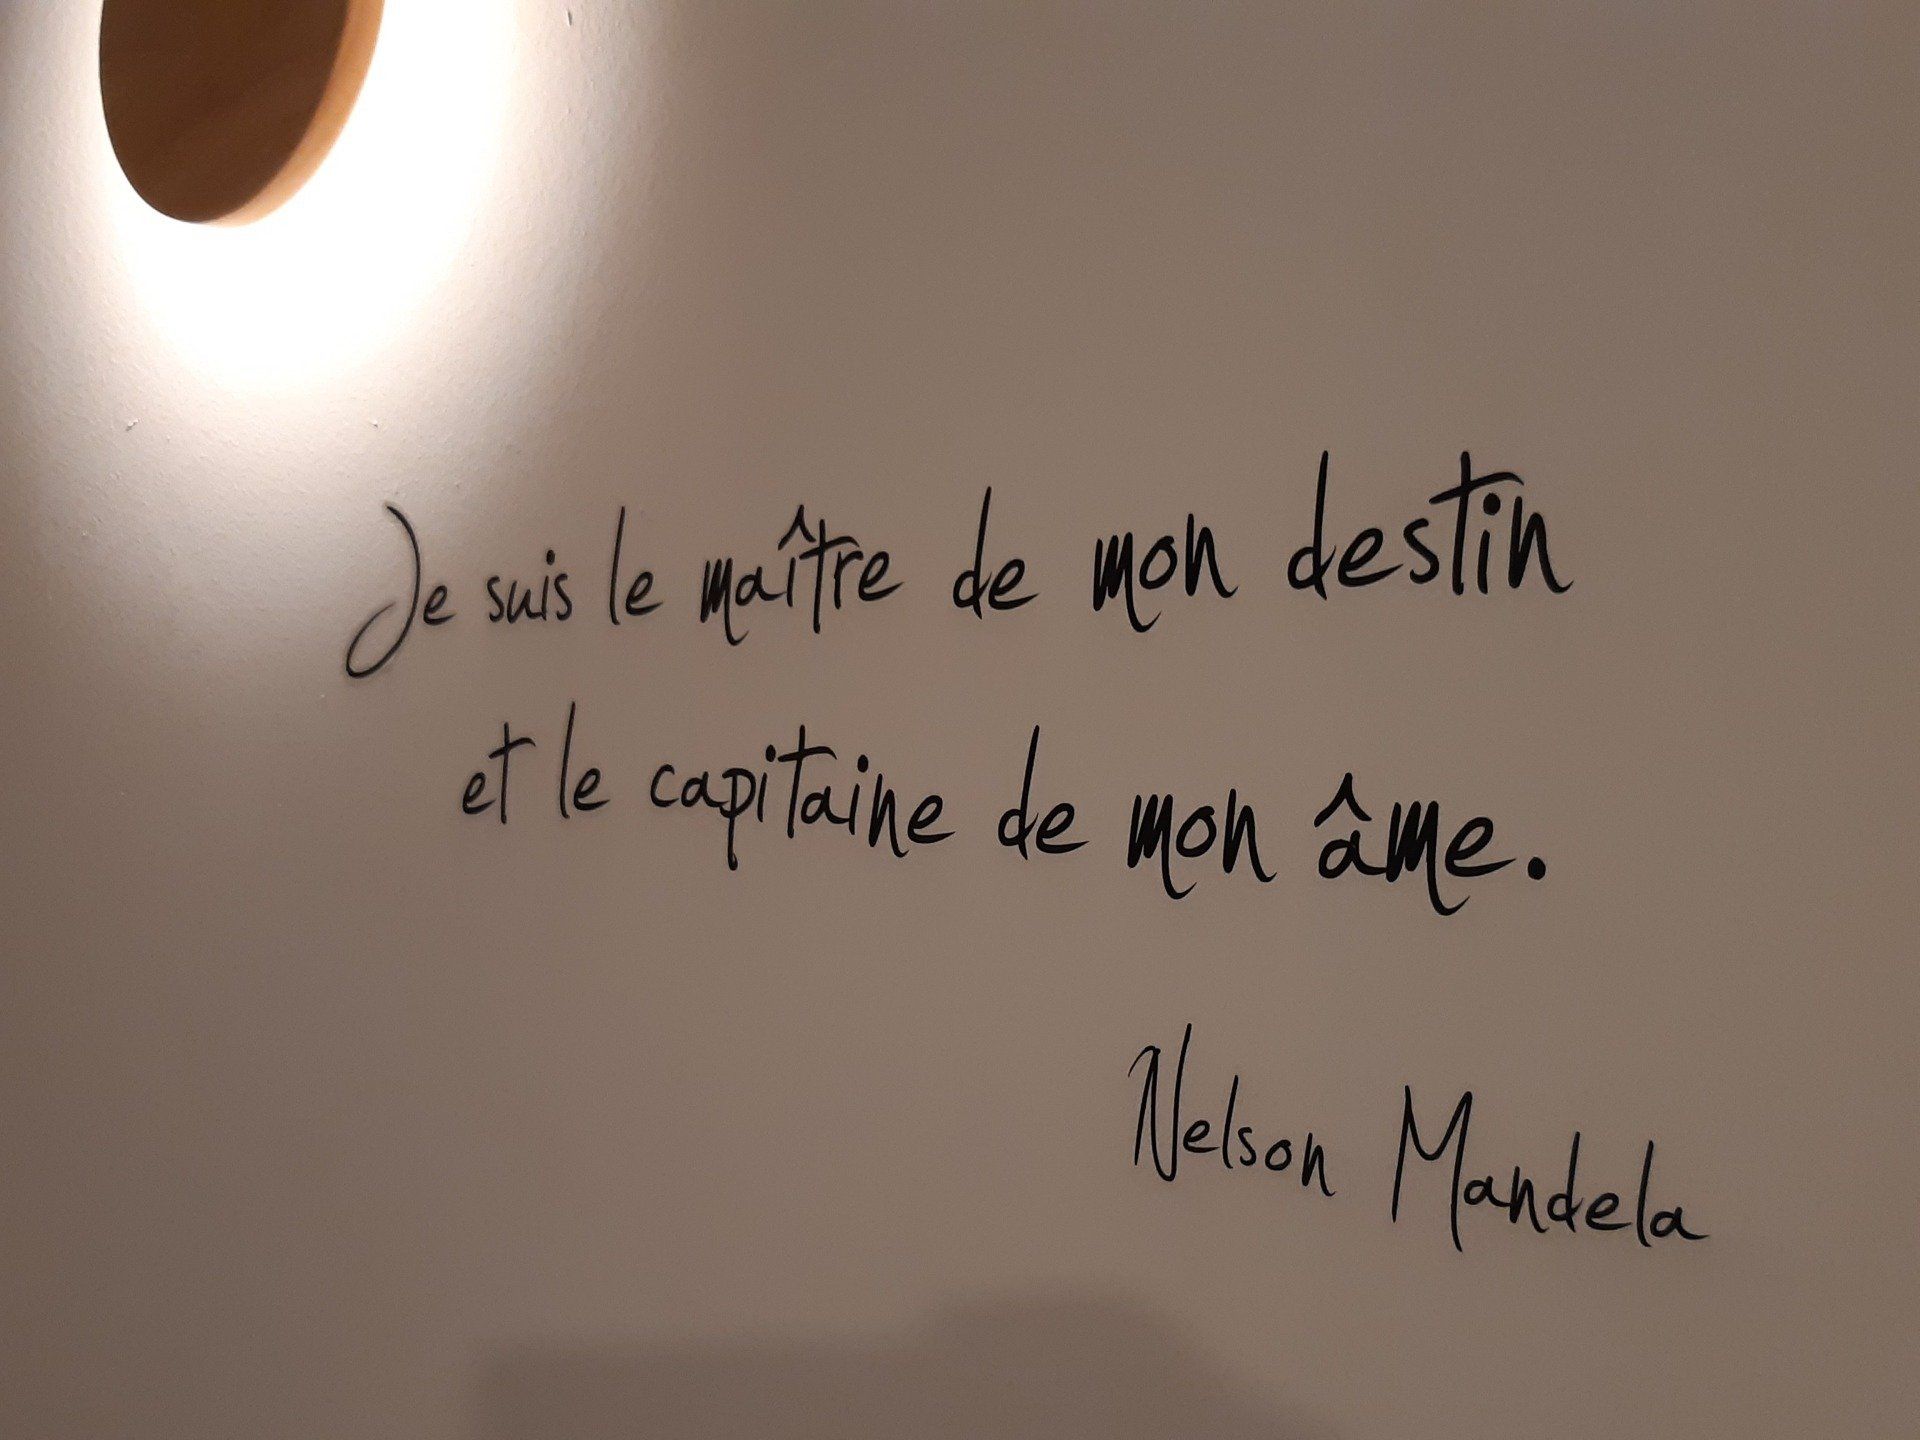 Je suis le maître de mon destin
et le capitaine de mon âme.
Nelson Mandela